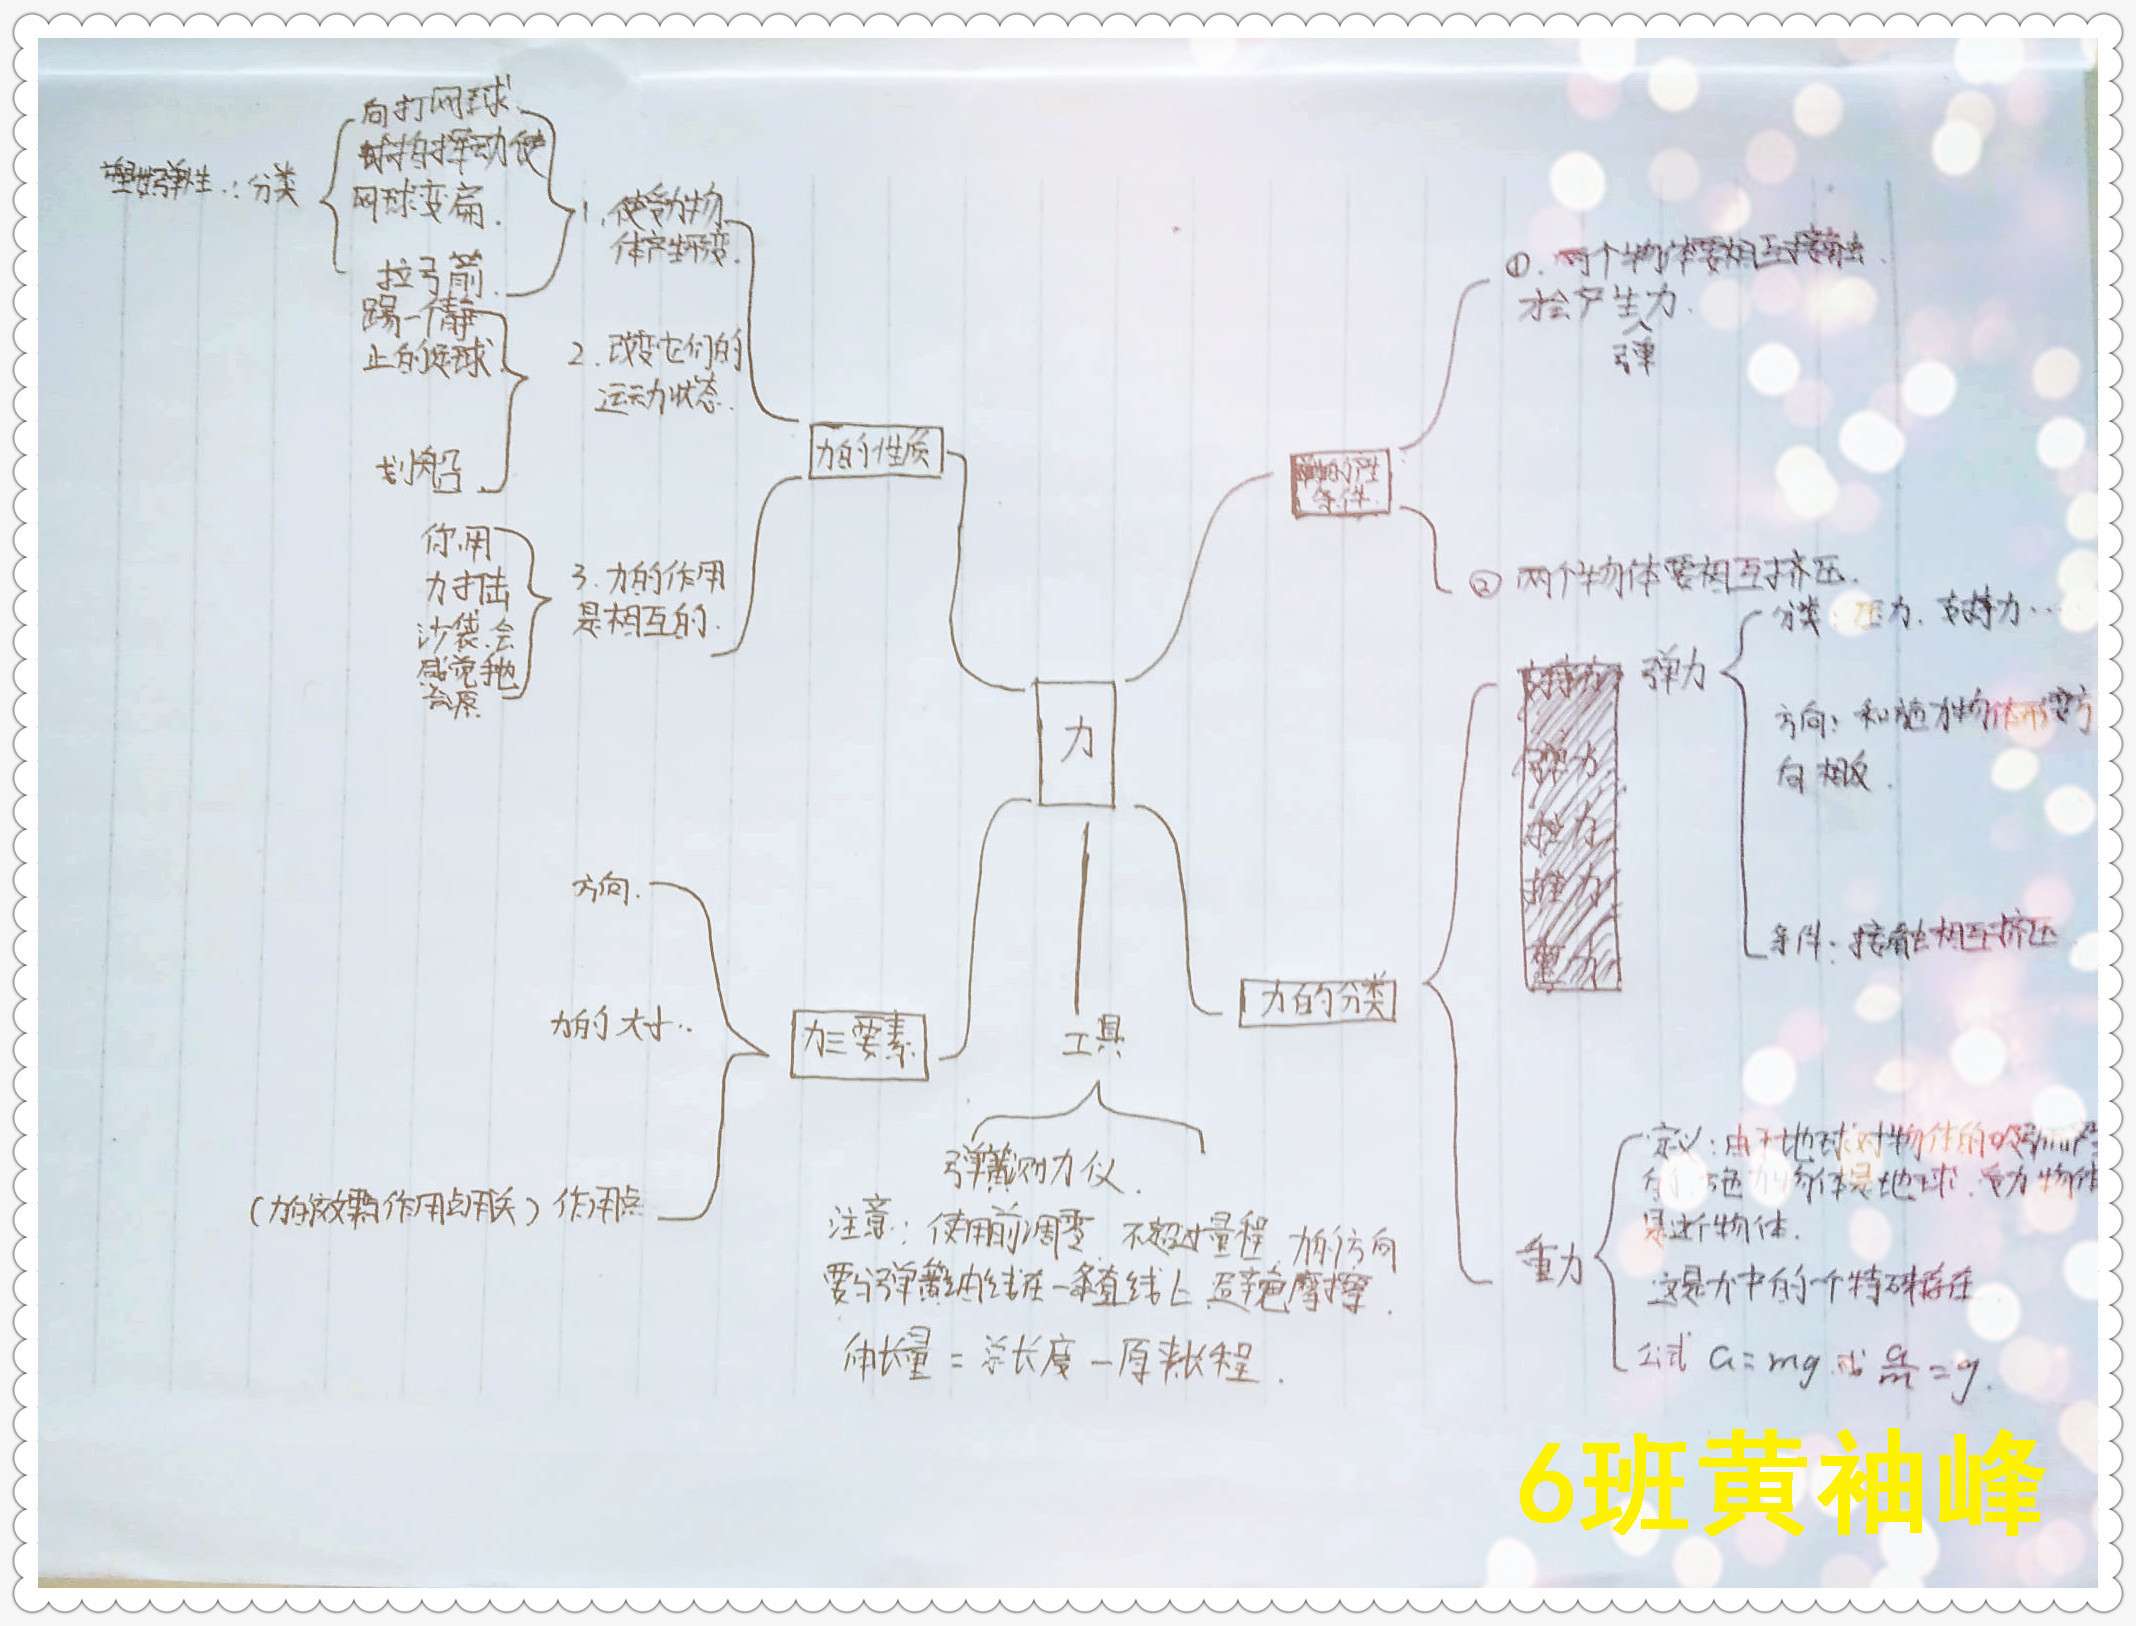 向打网球
球拍挥动使
网球变扁.
拉弓箭.
塑性弹性.:分类
1.使受力物
体产生形变.
踢一个静
止的足球.
划船
2.改变它们的
运动状态.
你用
力打击
沙袋.会
感觉
3.力的作用
是相互的.
力的性质
力
弹力的产生
条件.
①.两个物体要相互接触.
才会产生力.
弹
②两个物体要相互挤压.
力的分类
弹力
分类:压力.支持力…
方向:和施力物体形变方
向相反.
条件:接触相互挤压
重力
定义:由于地球对物体的吸引而产生
施力物体是地球.受力物体
是这个物体.
这是力中的一个特殊存在
公式 G=mg.或G/m=g.
力三要素
方向.
力的大小..
(力的效果与作用点有关)作用点
工具
弹簧测力仪.
注意:使用前调零 不超过量程 力的方向
要与弹簧轴线在一条直线上 避免摩擦.
伸长量=总长度-原来长程.
6班黄袖峰